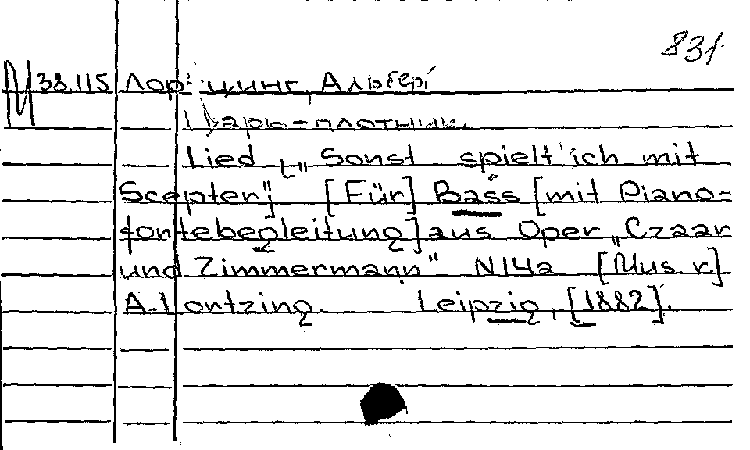 831
М 38.115 Лорцинг, Альберт
Царь-плотник.
Lied „Sonst spielt' ich mit
Scepter" [Für] Bass [mit Piano-
fortebegleitung] aus Oper „Czaar
und Zimmermann" N14a [Mus. v]
A. Lortzing. Leipzig, [1882].